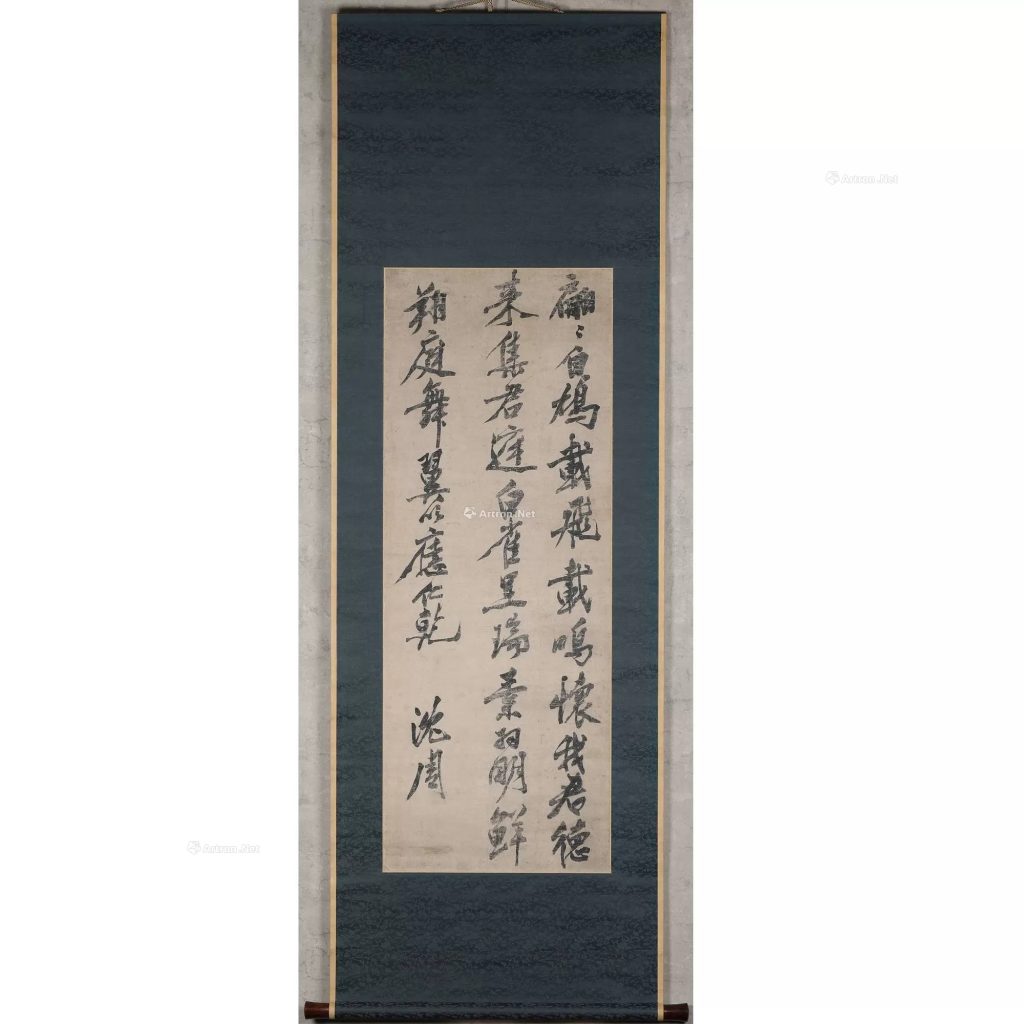 翩〻白鳩載飛載鳴懷我君德
來集君庭白雀呈瑞素羽明鮮
翔庭舞翼以應仁乾 沈周
Artron.Net
Artron.Net
Artron.Net